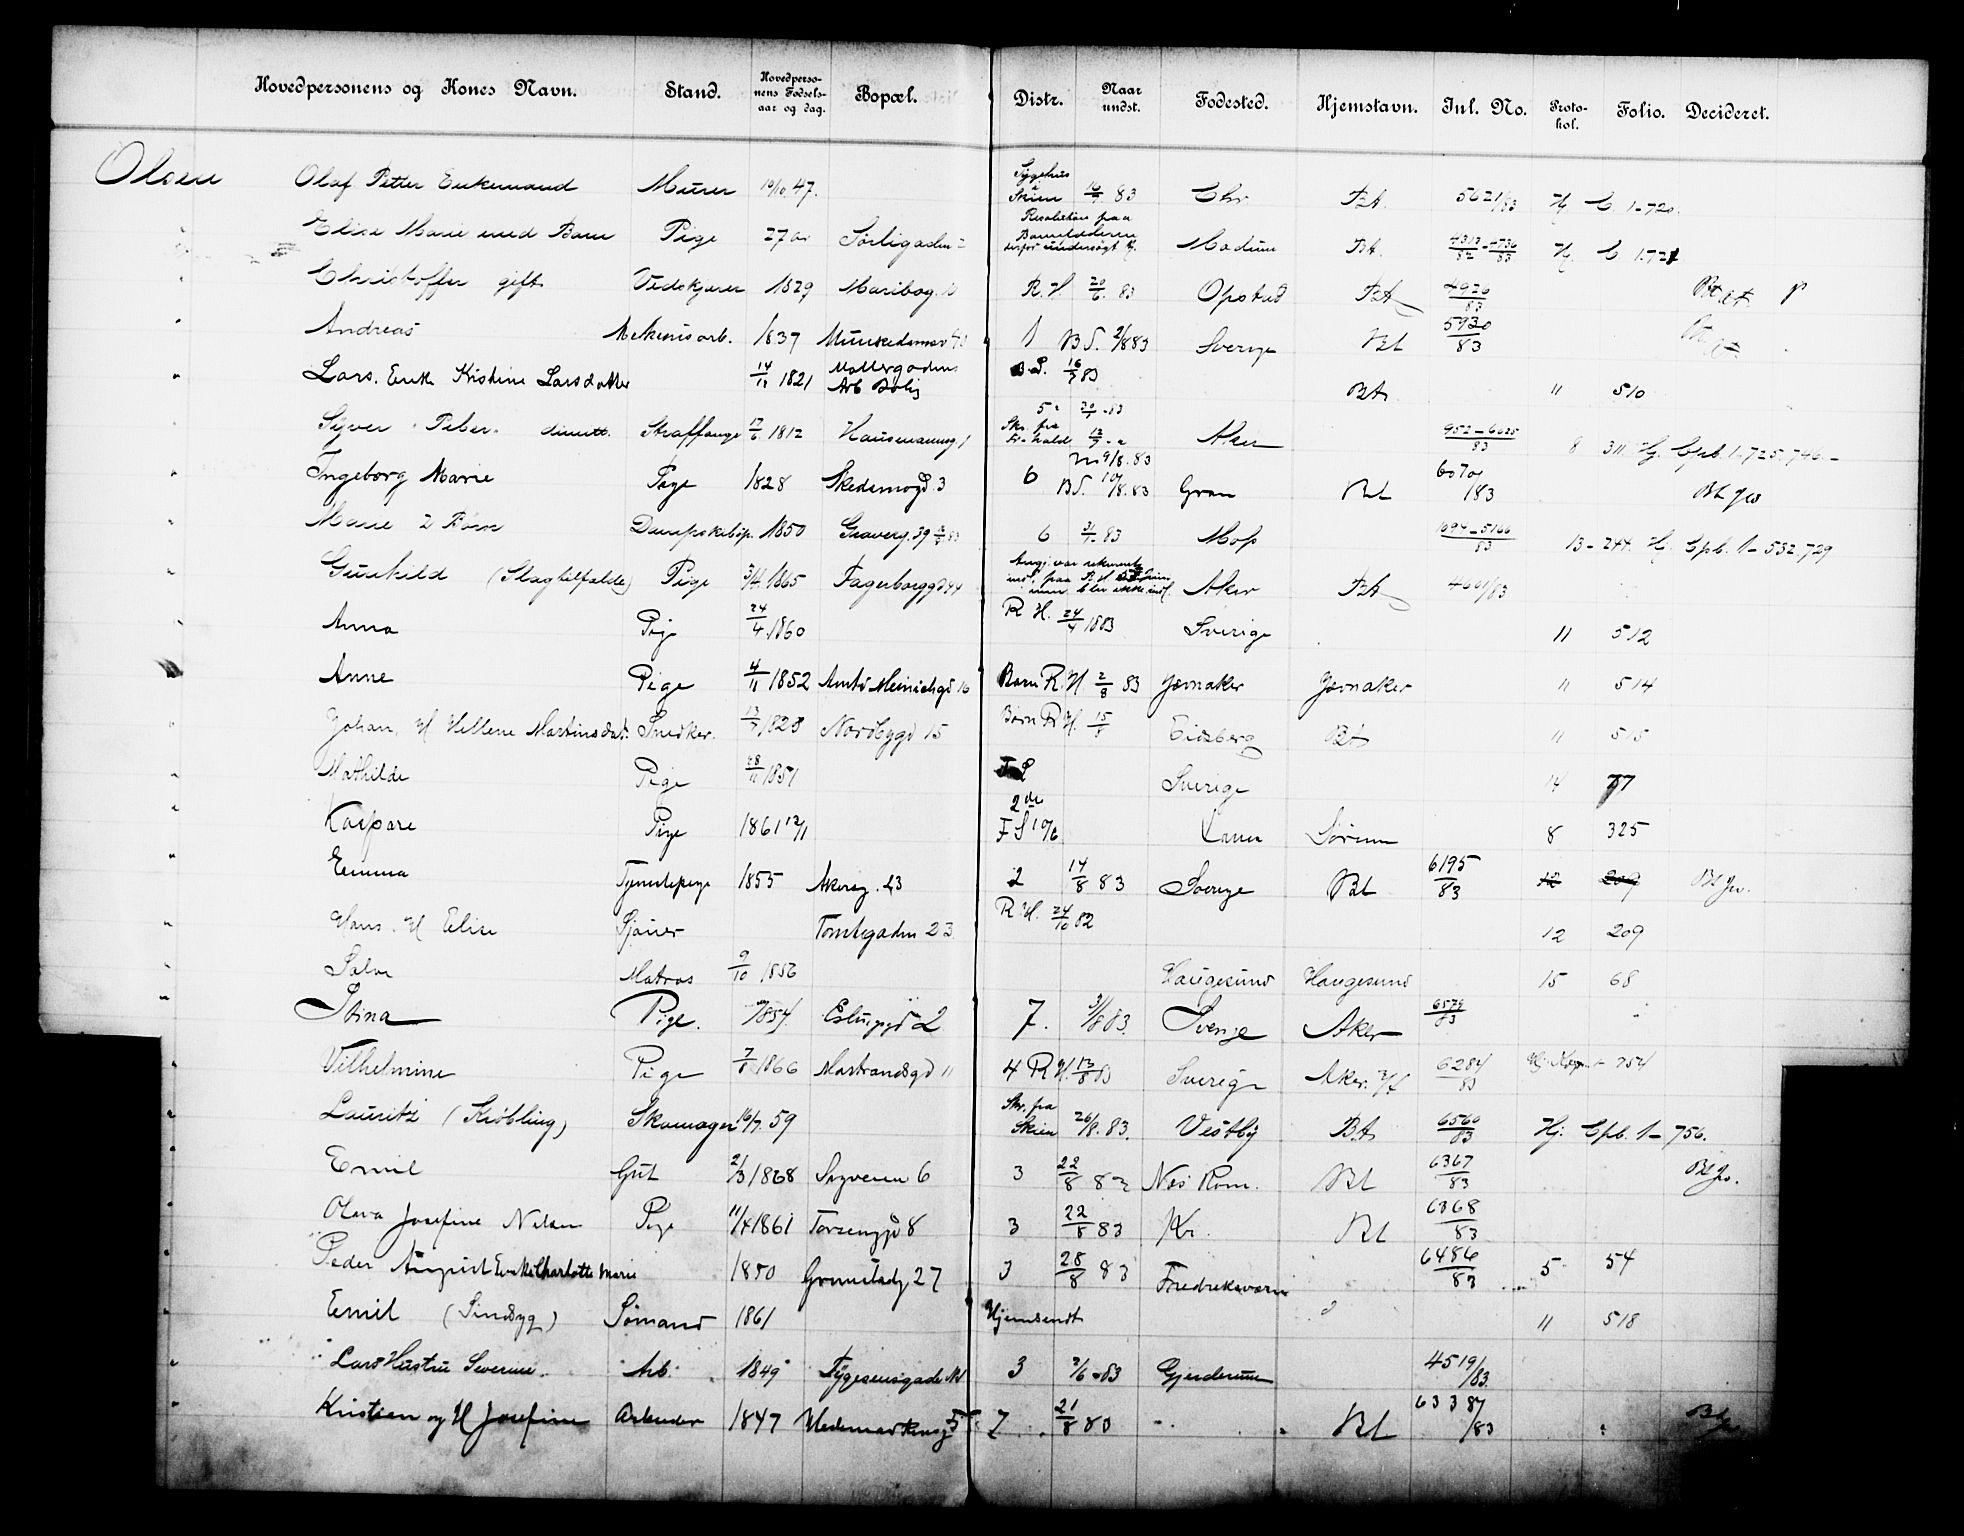 Hovedpersonens og Kones Navn. Stand. Hovedpersonens Fødselsaar og dag. Bopæl. Distr. Naar undst. Fødested. Hjemstavn. Inl. No. Protokol. Folio. Decideret.
Olsen Olaf Petter Enkemand Murer 10/10 47. Sygehus Skien 16/7 83 Chr Bt. 5621/83 Hj. C. 1-720.
Elise Marie med Barn Pige 27 aar Resolution paa Modum Bt. 4313/82 - 4736/83 Hj. C. 1-721
Christoffer gift Vedskjærer 1829 Maribog. R.H. 20/6 83 Opstad Bt 4926/83
Andreas Mekanisarb. 1837 Munkedamsv 1 B.S. 2/8 83 Sverige Bt 5930/83
Lars. Enke Kristine Larsdatter 14/11 1821 Møllergadens Arb Bolig 16/7 83 Bt 11 510
Syver Peter dimitt. Straffange 17/6 1812 Hausmannsg. 1 Aker 952-6625/83 8 311 Hj. Cpb. 1-725.746.-
Ingeborg Marie Pige 1828 Skedsmogd. 3 6 B.S. 10/8.83 Gran Bt 6070/83 Bt
Marie 2 Børn 1850 Graverg. 39 6 31/7.83 Moss 1694-5166/83 13-244. Hj. Cpb. 1-532.729
Gunhild (Slagtilfælde) Pige 3/4 1865 Fagerborggd 44 Aker Bt 4601/83
Anna Pige 24/4 1860 R H. 24/4 1883 Sverige 11 512
Anne Pige 4/11 1852 Amtd Meinichgd 16 Barn R.H 2/8 83 Jevnaker Jevnaker 11 514
Johan, H Hellene Martinsdat. Snedker. 13/7 1828 Nordbygd 15 Børn R.H. 15/8 Eidsberg Bt 11 515
Mathilde Pige 28/11 1851 Sverige 14 77
Kaspare Pige 1861 12/11 2de F S 10/6 Sørum 8 325
Emma Tjenestepige 1855 Akersg. 23 2 14/8 83 Sverige Bt 6195/83 12 209 Bt
Hans. H Elise Sjouer Tomtegaden 23 R.H. 24/10 82 12 209
Salve Matros 9/10 1856 Haugesund Haugesund 15 68
Stina Pige. 1854 2 7. 31/8 83. Sverige Aker 6579/83
Vilhelmine Pige 7/8 1866 Mastrandsgd 11 4 R H. 13/8 83 Sverige Aker. 6284/83 754
Lauritz (Krøbling) Skomager 16/7. 59 Skr. fra Skien 26/8. 83. Vestby Bt 6560/83 Hj: Cpb. 1-756.
Emil Gut 21/3 1868 6 3 22/8 83 Nes Rom. Bt 6367/83 Bt
Olava Josefine Nilsen Pige 11/4 1861 8 3 22/8 83 Kr. Bt 6368/83
Peder August Enke Charlotte Marie 1850 Grønnlandg 27 3 28/8 83 Fredriksværn 6486/83 5 54
Emil (Sindsyg) Sømand 1861 Hjemsendt 11 518
Lars Hustru Severine. Arb. 1849 3 7/6-83 Gjerderum 4519/83.
Kristian og H Josefine Arbeider 1847 Hedemarkensg 5 7 21/8 83 Bt 6338/83 Bt